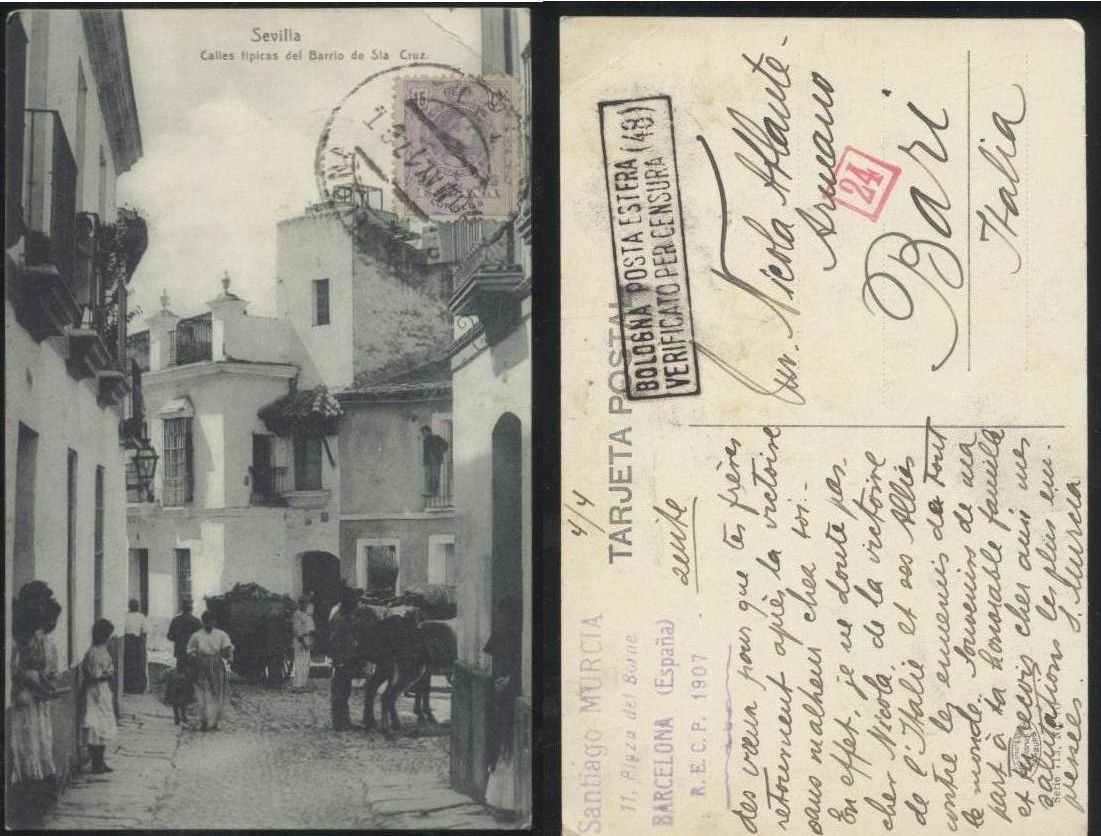 Sevilla
Calles típicas del Barrio de Sta Cruz.
15
TARJETA POSTAL
BOLOGNA POSTA ESTERA (48)
VERIFICATO PER CENSURA
Nicola Attante
Armeano
24
Bari
Italia
4/4
suite
Santiago MURCIA
11, Plaza del Borne
BARCELONA (España)
R. E. C. P. 1907
des vœux pour que tes frères
retournent après la victoire
sans malheur chez toi.-
En effet, je ne doute pas
cher Nicola, de la victoire
de l'Italie et ses Alliés
contre les ennemis de tout
le monde. Souvenirs de ma
part à ta honorable famille
et reçois cher ami mes
salutations les plus em-
pressées. S. Murcia